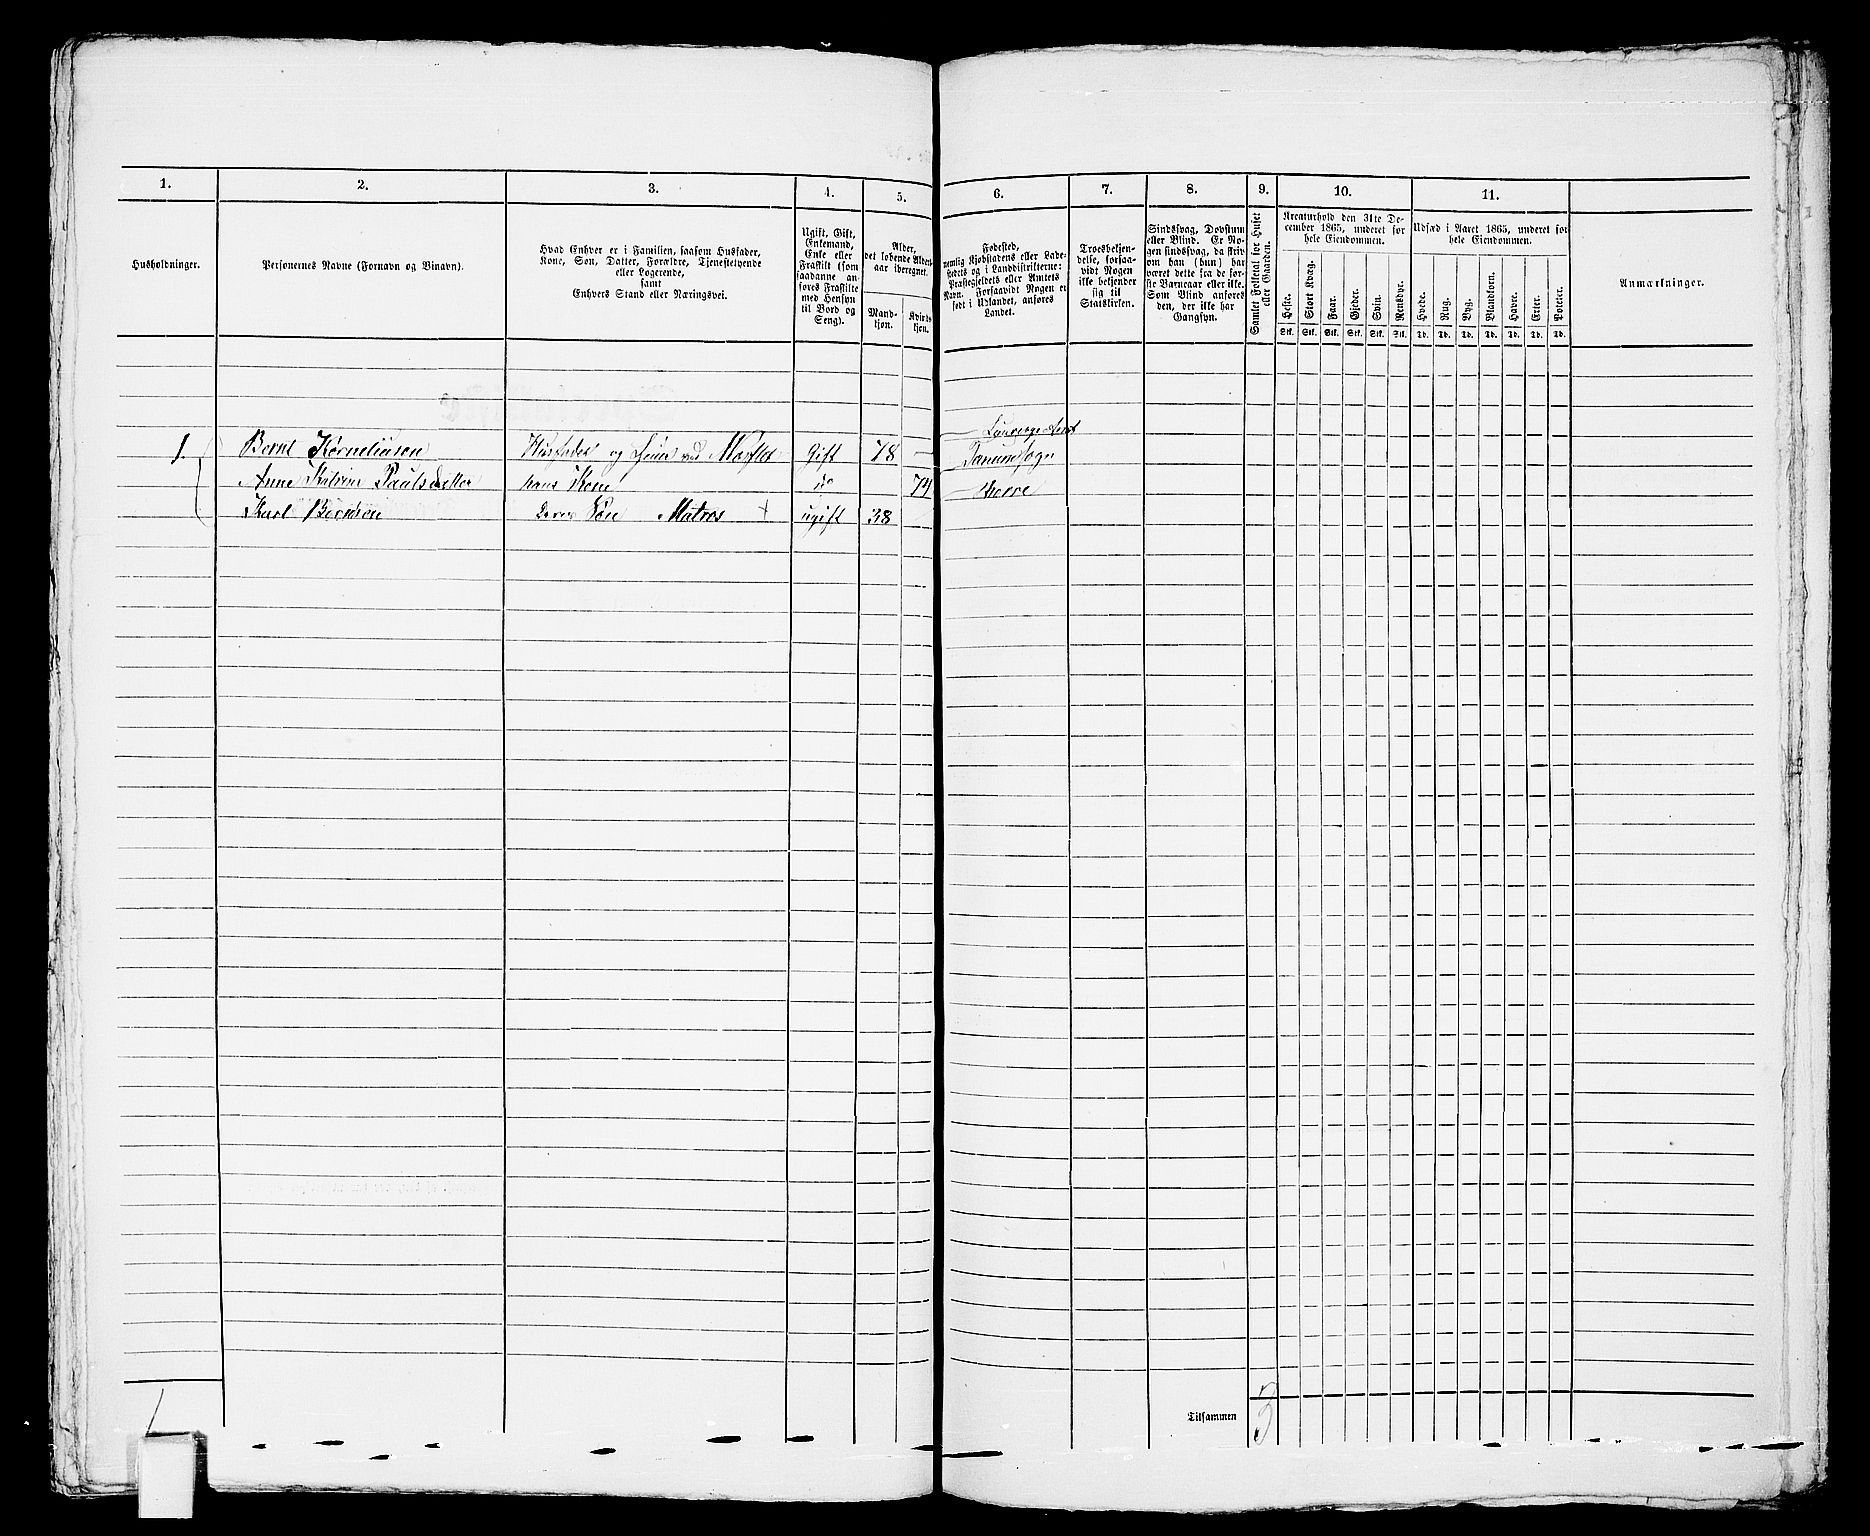 1. 2. 3. 4. 5. 6. 7. 8. 9. 10. 11.
Husholdninger.
Personernes Navne (Fornavn og Binavn).
Hvad Enhver er i Familien, saasom Husfader,
Kone, Søn, Datter, Forældre, Tjenestetyende
eller Logerende,
samt
Enhvers Stand eller Næringsvei.
Ugift, Gift,
Enkemand,
Enke eller
Fraskilt (som
saadanne an-
føres Fraskilte
med Hensyn
til Bord og
Seng).
Alder,
det løbende Alders-
aar iberegnet.
Mand-
kjøn.
Kvind-
kjøn.
Fødested,
nemlig Kjøbstadens eller Lade-
stedets og i Landdistrikterne:
Præstegjeldets eller Amtets
Navn. Forsaavidt Nogen er
født i Udlandet, anføres
Landet.
Troesbekjen-
delse, forsaa-
vidt Nogen
ikke bekjender
sig til
Statskirken.
Sindssvag, Døvstum
eller Blind. Er No-
gen sindssvag, da skriv
om han (hun) har
været dette fra de før-
ste Barneaar eller ikke.
Som Blind anføres
den, der ikke har
Gangsyn.
Samlet Folketal for Huset
eller Gaarden.
Kreaturhold den 31te De-
cember 1865, underet for
hele Eiendommen.
Heste. Stort Kvæg. Faar. Gjeder. Svin. Rensdyr.
Stk. Stk. Stk. Stk. Stk. Stk.
Udsæd i Aaret 1865, underet for
hele Eiendommen.
Hvede. Rug. Byg. Blandkorn. Havre. Erter. Poteter.
Td. Td. Td. Td. Td. Td. Td.
Anmærkninger.
1. Bernt Korneliusen Husfader og ved Gift 78 Tanum Sogn
Anne Katrine Paulsdatter hans Kone do 74
Karl Berntsen Deres Søn Matros + ugift 38
Tilsammen 3
1